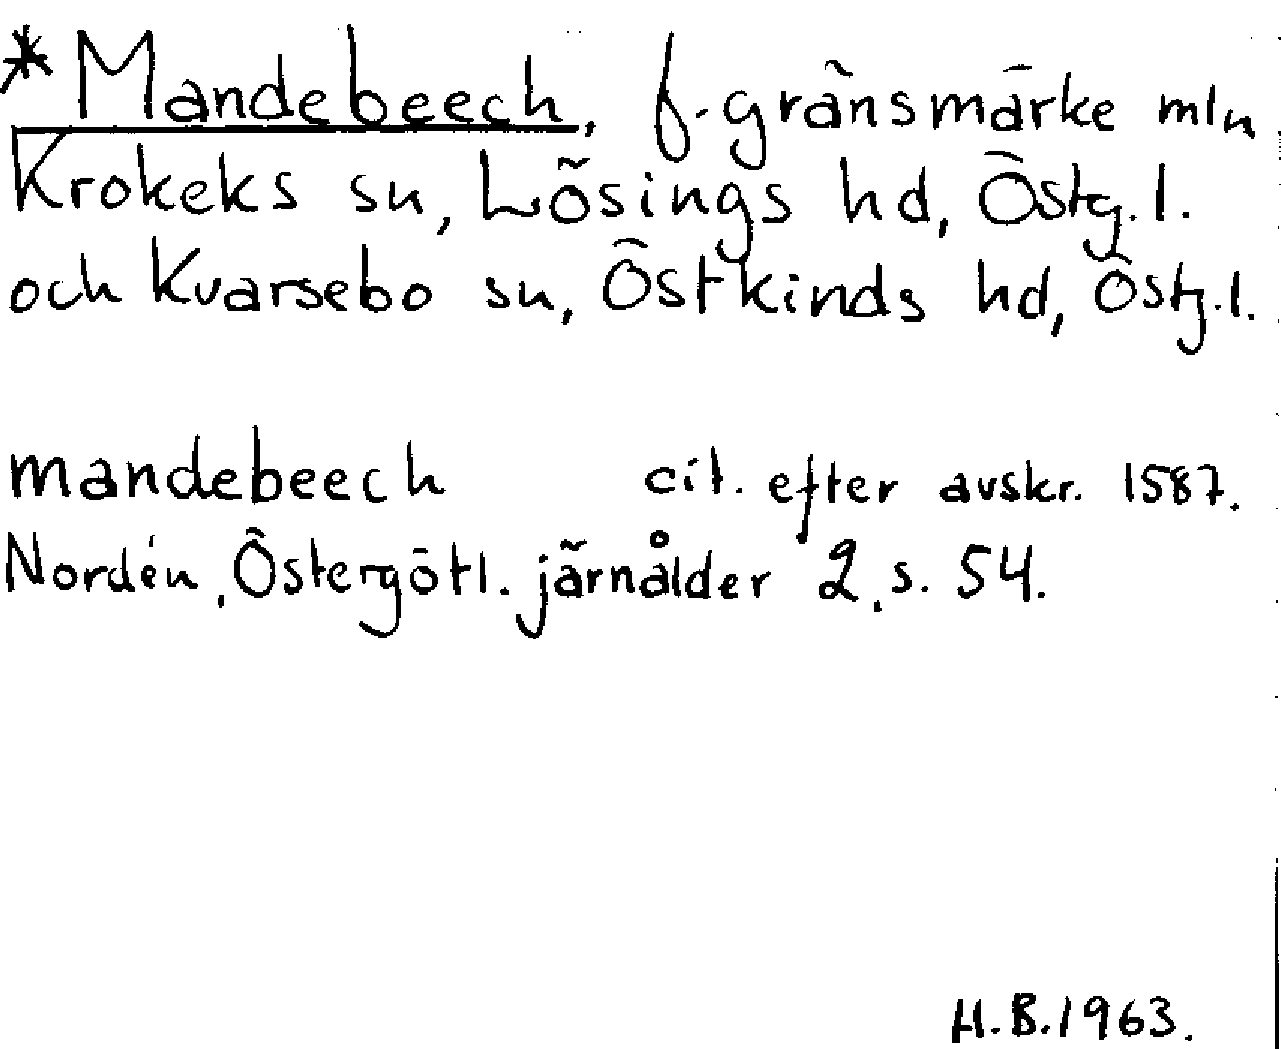 * Mandebeech, f. gränsmärke mln
Krokeks sn, Lösings hd, Östg. l.
och Kvarsebo sn, Östkinds hd, Östg. l.
mandebeech cit. efter avskr. 1587.
Nordén, Östergötl. järnålder 2, s. 54.
H.B. 1963.